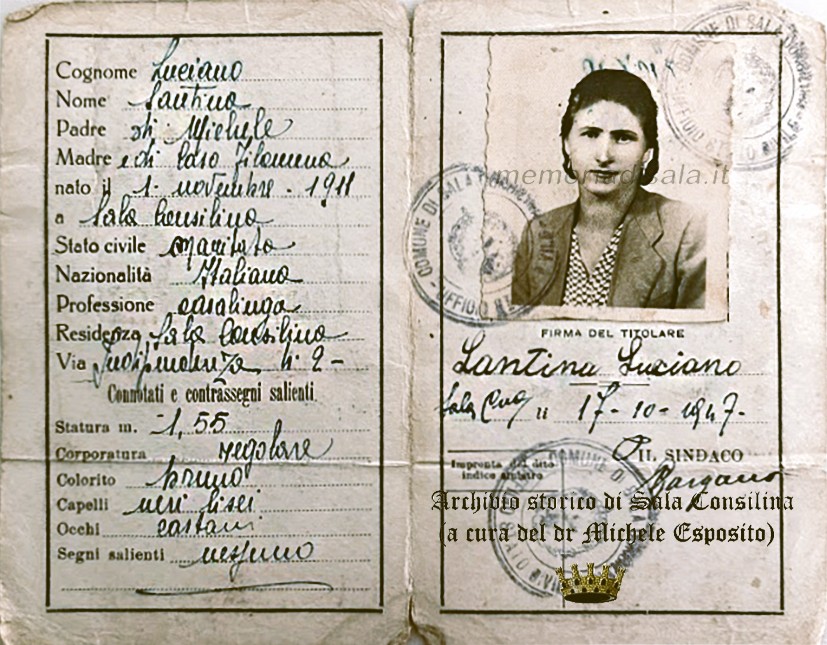 Cognome Luciano
Nome Santina
Padre di Michele
Madre e di Caso Filomena
nato il 1 - novembre - 1911
a Sala Consilina
Stato civile maritata
Nazionalità Italiana
Professione casalinga
Residenza Sala Consilina
Via Indipendenza n 2 -
Connotati e contrassegni salienti
Statura m. 1,55
Corporatura regolare
Colorito bruno
Capelli neri lisci
Occhi castani
Segni salienti nessuno
COMUNE DI SALA CONSILINA
UFFICIO
memoriadisala.it
COMUNE DI SALA CONSILINA
UFFICIO CIVILE
FIRMA DEL TITOLARE
Santina Luciano
Sala Cna li 17-10-1947-
IL SINDACO
Impronta del dito
indice sinistro
COMUNE DI SALA
STATO CIVILE
Archivio storico di Sala Consilina
(a cura del dr Michele Esposito)